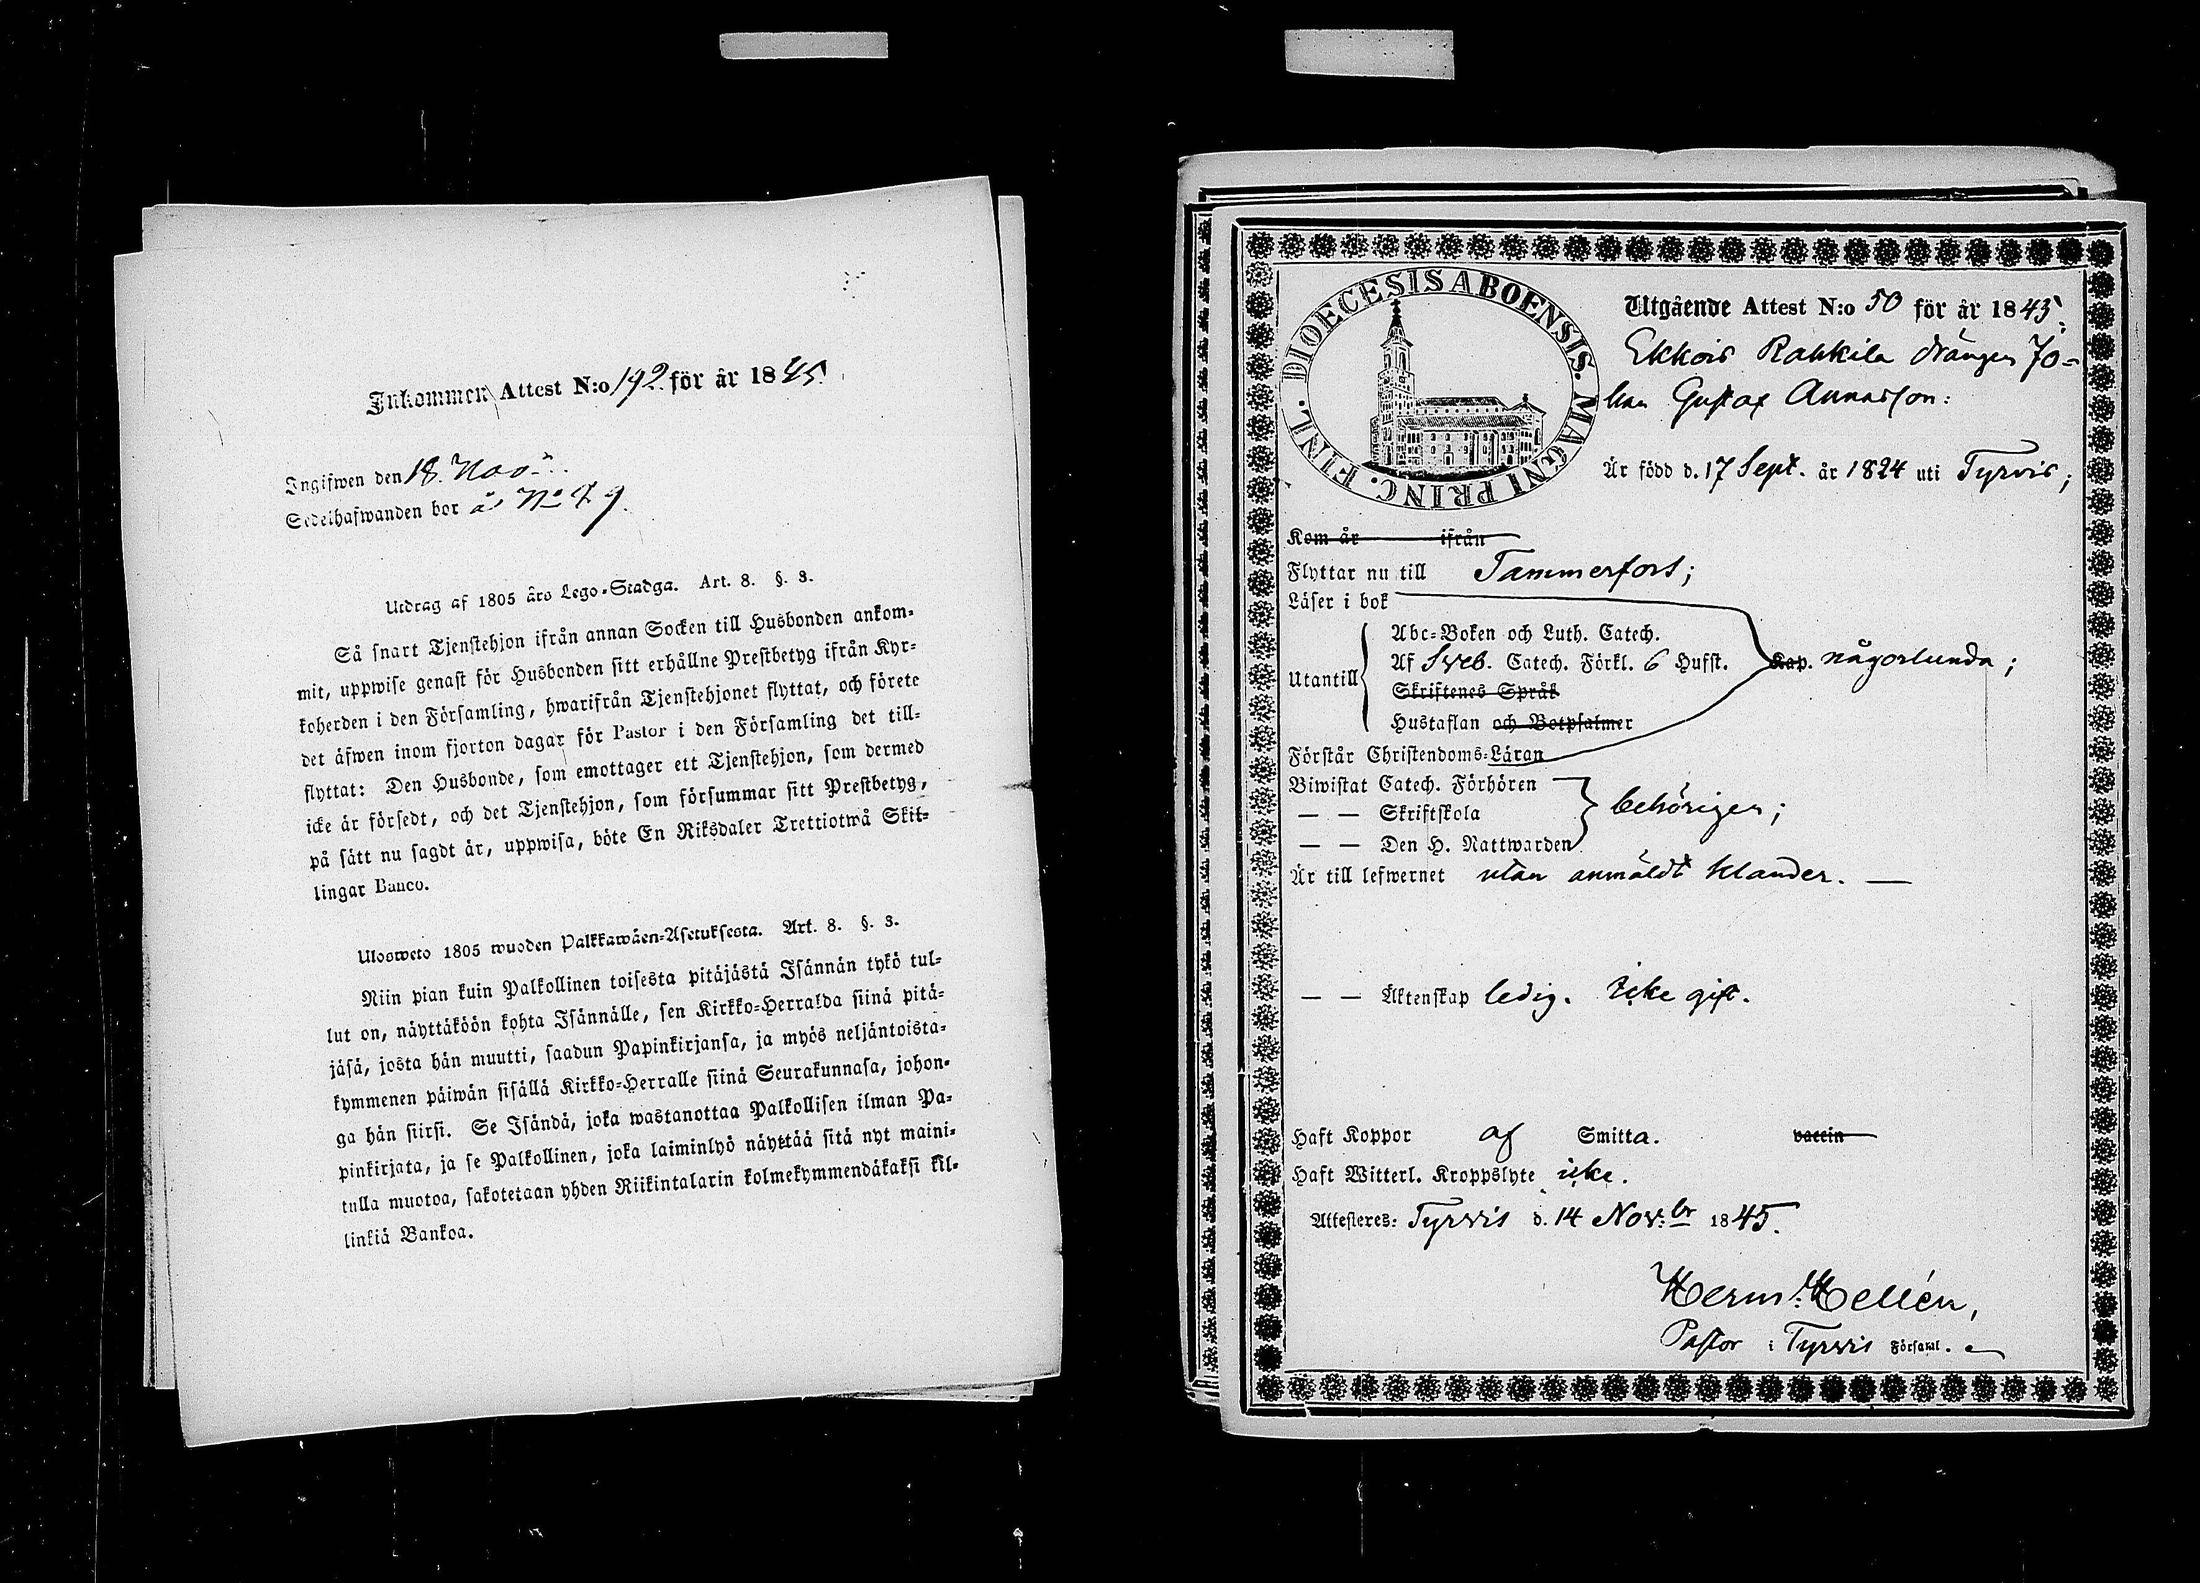 Inkommen Attest N:o 192. för år 1845.
Ingifwen den 18. Nov:
Sedelhafwanden bor å No 49.
Utdrag af 1805 års Lego-Stadga. Art. 8. §. 3.
Så snart Tjenstehjon ifrån annan Socken till Husbonden ankom-
mit, uppwise genast för Husbonden sitt erhållne Prestbetyg ifrån Kyr-
koherden i den Församling, hwarifrån Tjenstehjonet flyttat, och förete
det äfwen inom fjorton dagar för Pastor i den Församling det till-
flyttat: Den Husbonde, som emottager ett Tjenstehjon, som dermed
icke är försedt, och det Tjenstehjon, som försummar sitt Prestbetyg,
på sätt nu sagdt är, uppwisa, böte En Riksdaler Trettiotwå Skil-
lingar Banco.
Ulosweto 1805 wuoden Palkkawäen-Asetuksesta. Art. 8. §. 3.
Niin pian kuin Palkollinen toisesta pitäjästä Isännän tykö tul-
lut on, näyttäköön kohta Isännälle, sen Kirkko-Herralda siinä pitä-
jäsä, josta hän muutti, saadun Papinkirjansa, ja myös neljäntoista-
kymmenen päiwän sisällä Kirkko-Herralle siinä Seurakunnasa, johon-
ga hän siirsi. Se Isändä, joka wastanottaa Palkollisen ilman Pa-
pinkirjata, ja se Palkollinen, joka laiminlyö näyttää sitä nyt maini-
tulla muotoa, sakotetaan yhden Riikintalarin kolmekymmendäkaksi kil-
linkiä Bankoa.
DIOECESIS ABOENSIS. MAGNI PRINC. FINL.
Utgående Attest N:o 50 för år 1845.
Ekkois Rahkila drängen Jo-
han Gustaf Annasson:
Är född d. 17 Sept. år 1824 uti Tyrvis;
Kom år ifrån
Flyttar nu till Tammerfors;
Läser i bok
Utantill
Abc-Boken och Luth. Catech.
Af Sveb. Catech. Förkl. 6 Hufst. Kap. någorlunda;
Skriftenes Språk
Hustaflan och Botpsalmer
Förstår Christendoms-Läran
Biwistat Catech. Förhören
— — Skriftskola behörigen;
— — Den H. Nattwarden
Är till lefwernet utan anmäldt klander. —
— — Äktenskap ledig. Icke gift.
Haft Koppor af Smitta. vaccin
Haft Witterl. Kroppslyte icke.
Attesteres: Tyrvis d. 14 Nov:br 1845.
Herm: Hellén,
Pastor i Tyrvis Församl.